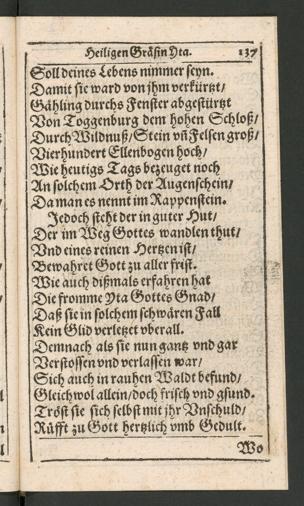 Heiligen Gräfin Yta. 137
Soll deines Lebens nimmer seyn.
Damit sie ward von jhm verkürtzt/
Gähling durchs Fenster abgestürtzt
Von Toggenburg dem hohen Schloß/
Durch Wildnuß/ Stein vñ Felsen groß/
Vierhundert Ellenbogen hoch/
Wie heutigs Tags bezeuget noch
An solchem Orth der Augenschein/
Da man es nennt im Rappenstein.
Jedoch steht der in guter Hut/
Der im Weg Gottes wandlen thut/
Vnd eines reinen Hertzen ist/
Bewahret Gott zu aller frist.
Wie auch dißmals erfahren hat
Die fromme Yta Gottes Gnad/
Daß sie in solchem schwären Fall
Kein Glid verletzet vberall.
Demnach als sie nun gantz vnd gar
Verstossen vnd verlassen war/
Sich auch in rauhen Waldt befund/
Gleichwol allein/ doch frisch vnd gsund.
Tröst sie sich selbst mit jhr Vnschuld/
Rüfft zu Gott hertzlich vmb Gedult.
Wo